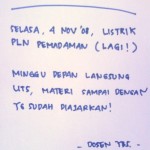 SELASA, 4 NOV '08, LISTRIK
PLN PEMADAMAN (LAGI!)
MINGGU DEPAN LANGSUNG
UTS, MATERI SAMPAI DENGAN
YG SUDAH DIAJARKAN!
- DOSEN YBS. -